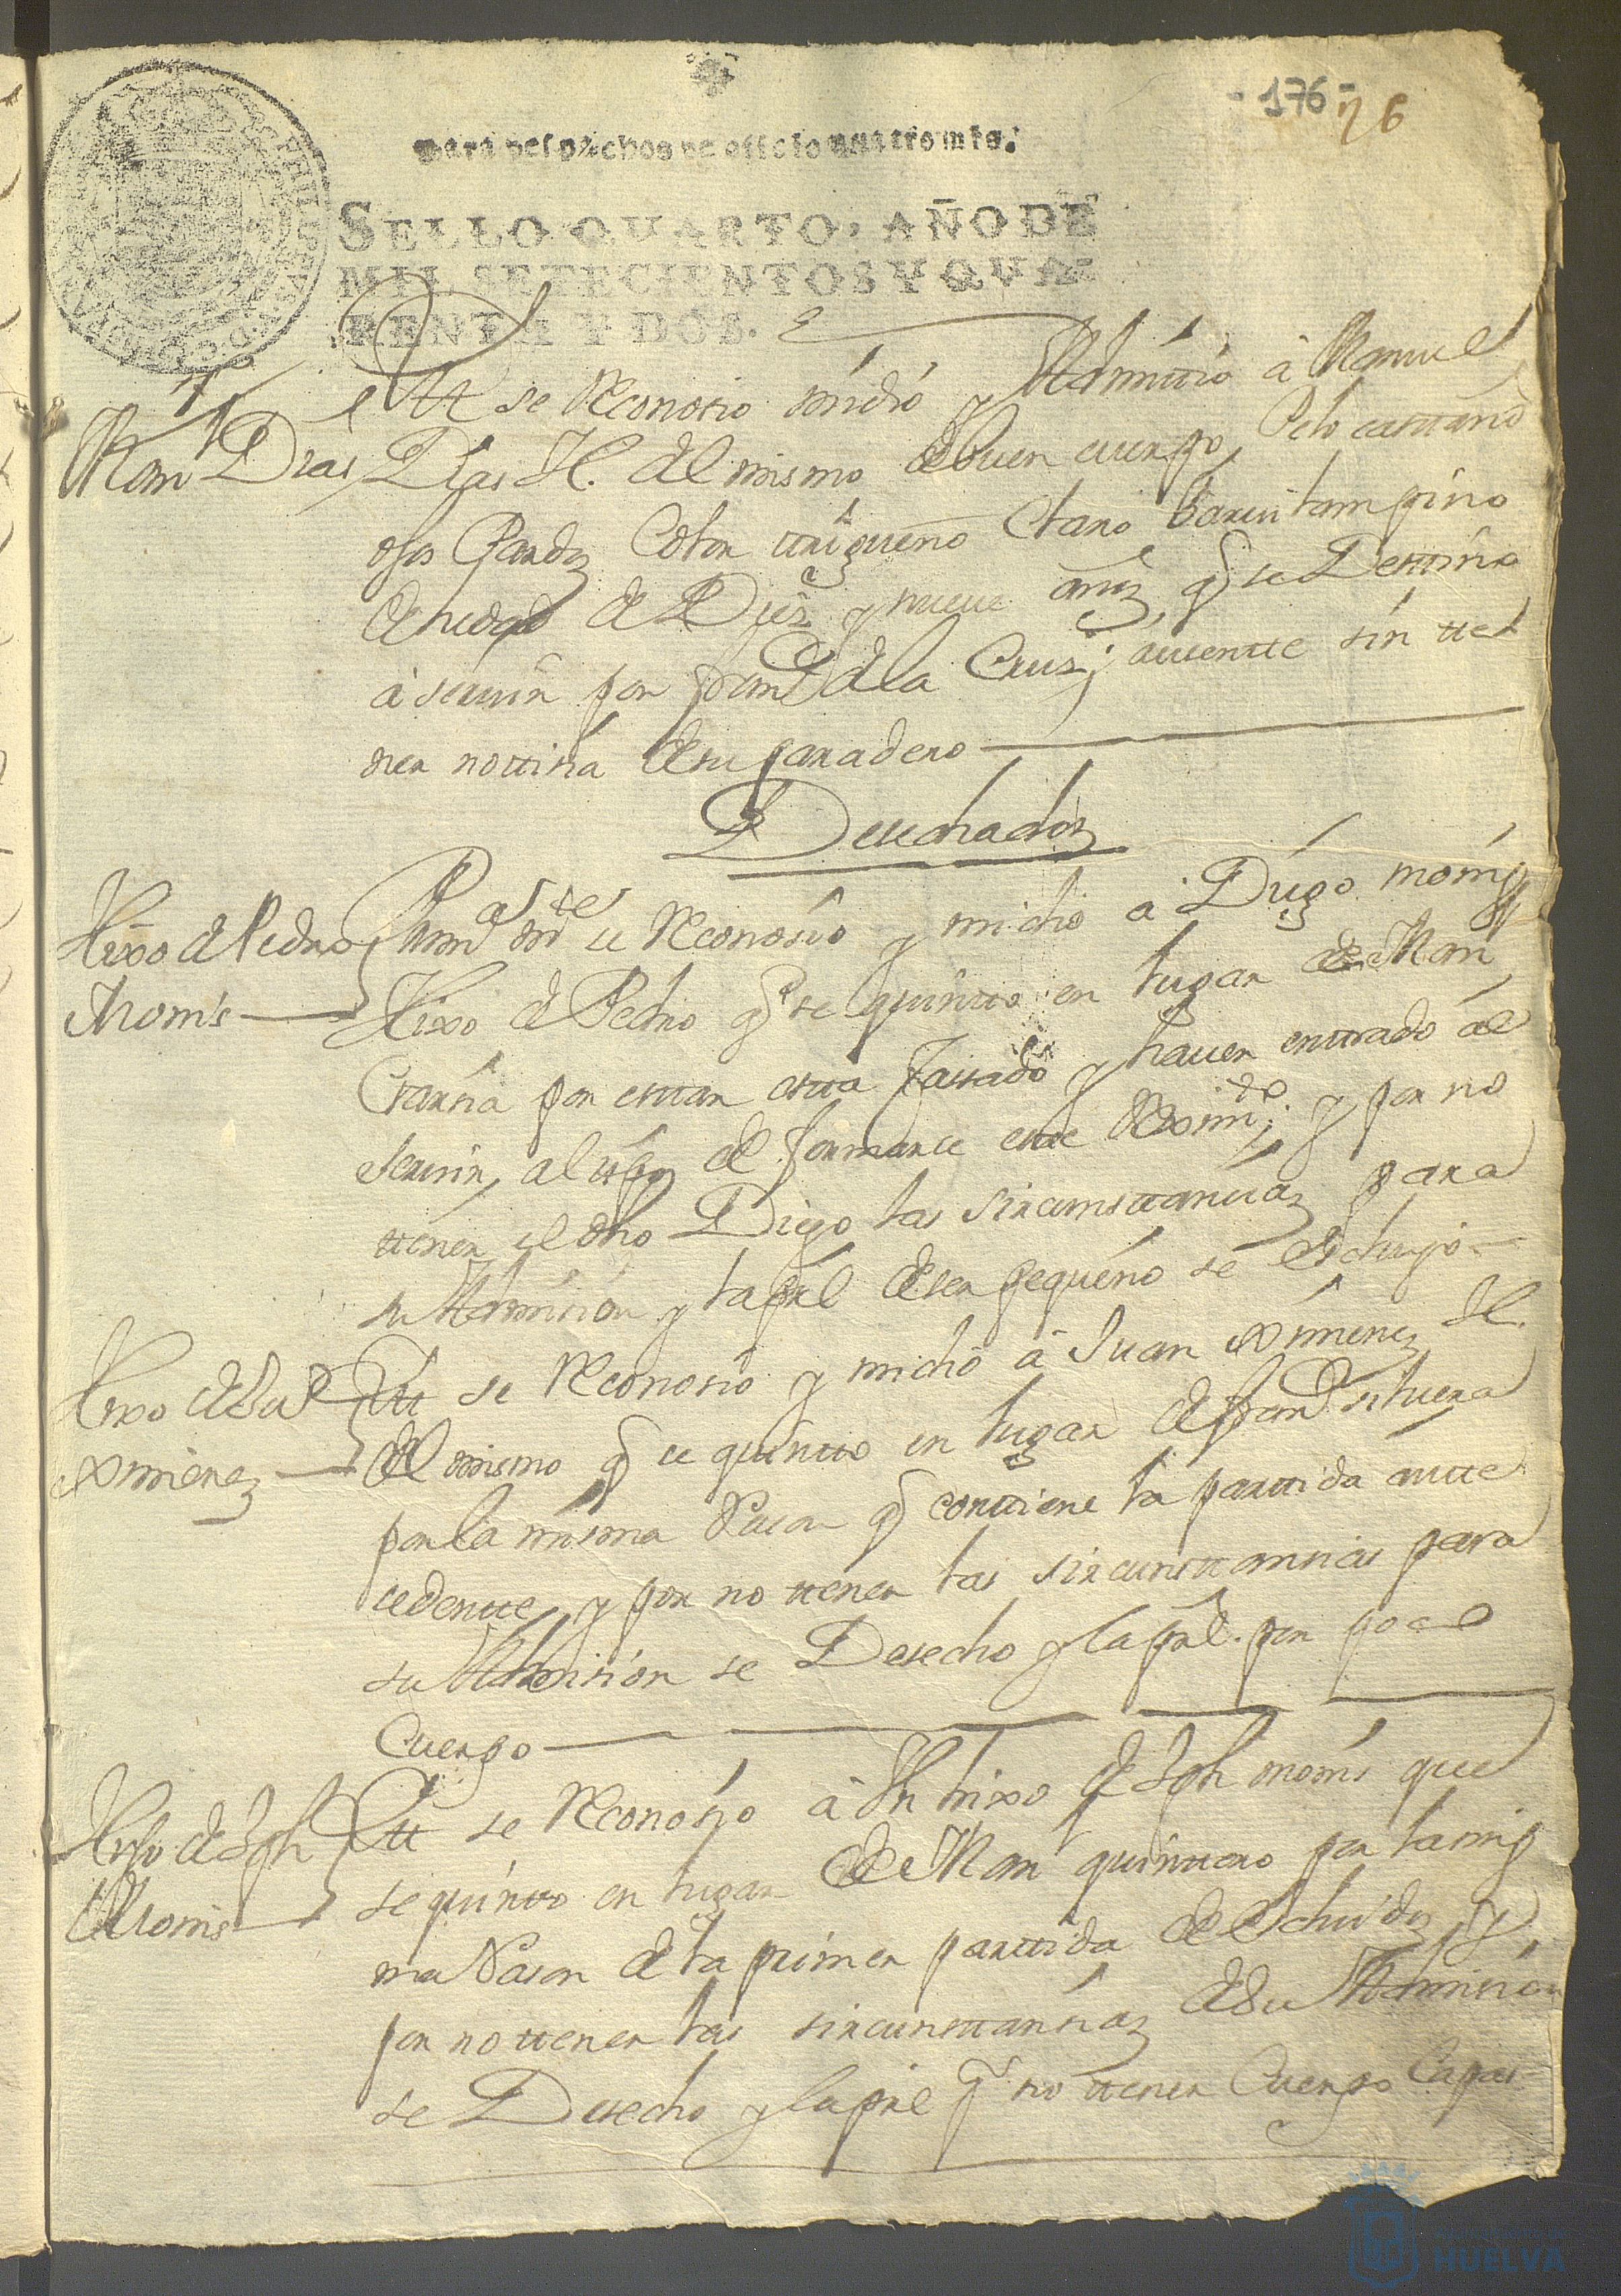 - 176 -
76
para despachos de oficio quatro mrs.
SELLO QVARTO, AÑO DE
MIL SETECIENTOS Y QVA
RENTA Y DOS.
Man Dias
Ytt se Reconosio midio y Admitio â Manuel
Dias H. del mismo de buen cuerpo, Pelo casttaño
ojos Pardos Color ttrigueño Claro barui lampiño
de hedad de Dies y nueve años, q se Desttina
â seruir por franco de la Cruz; ausentte sin tte
ner nottisia de su paradero
Desechados
Hixo de Pedro
Momis
Primeramte se Reconosio y midio â Diego momis
Hixo de Pedro q se quintto en lugar de Man
Garsia por esttar estta Passado y hauer enttrado al
seruir, al ttpo de formarce estte Reximto; y por no
ttener el dho Diego las sircunsttancias para
su Admision y la pral de ser pequeño se Escluyo
Hixo de Jua
Ximenez
Ytt se Reconosio y midio â Juan Ximenez H.
del mismo q se quintto en lugar de franco siluera
por la misma Rason q conttiene la parttida antte
cedentte, y por no ttener las sircunsttansias para
su Admision se Desecho y la pral. por poco
Cuerpo
Hijo de Jph
Momis
Ytt se Reconosio â Un hixo de Jph momis que
se quintto en lugar de Man quinttero por la mis
ma Rason de la primer parttida de Escluidos, y
por no ttener las sircunsttansias de su Admision
se Desecho y la pral pr no ttener Cuerpo Capas
HUELVA